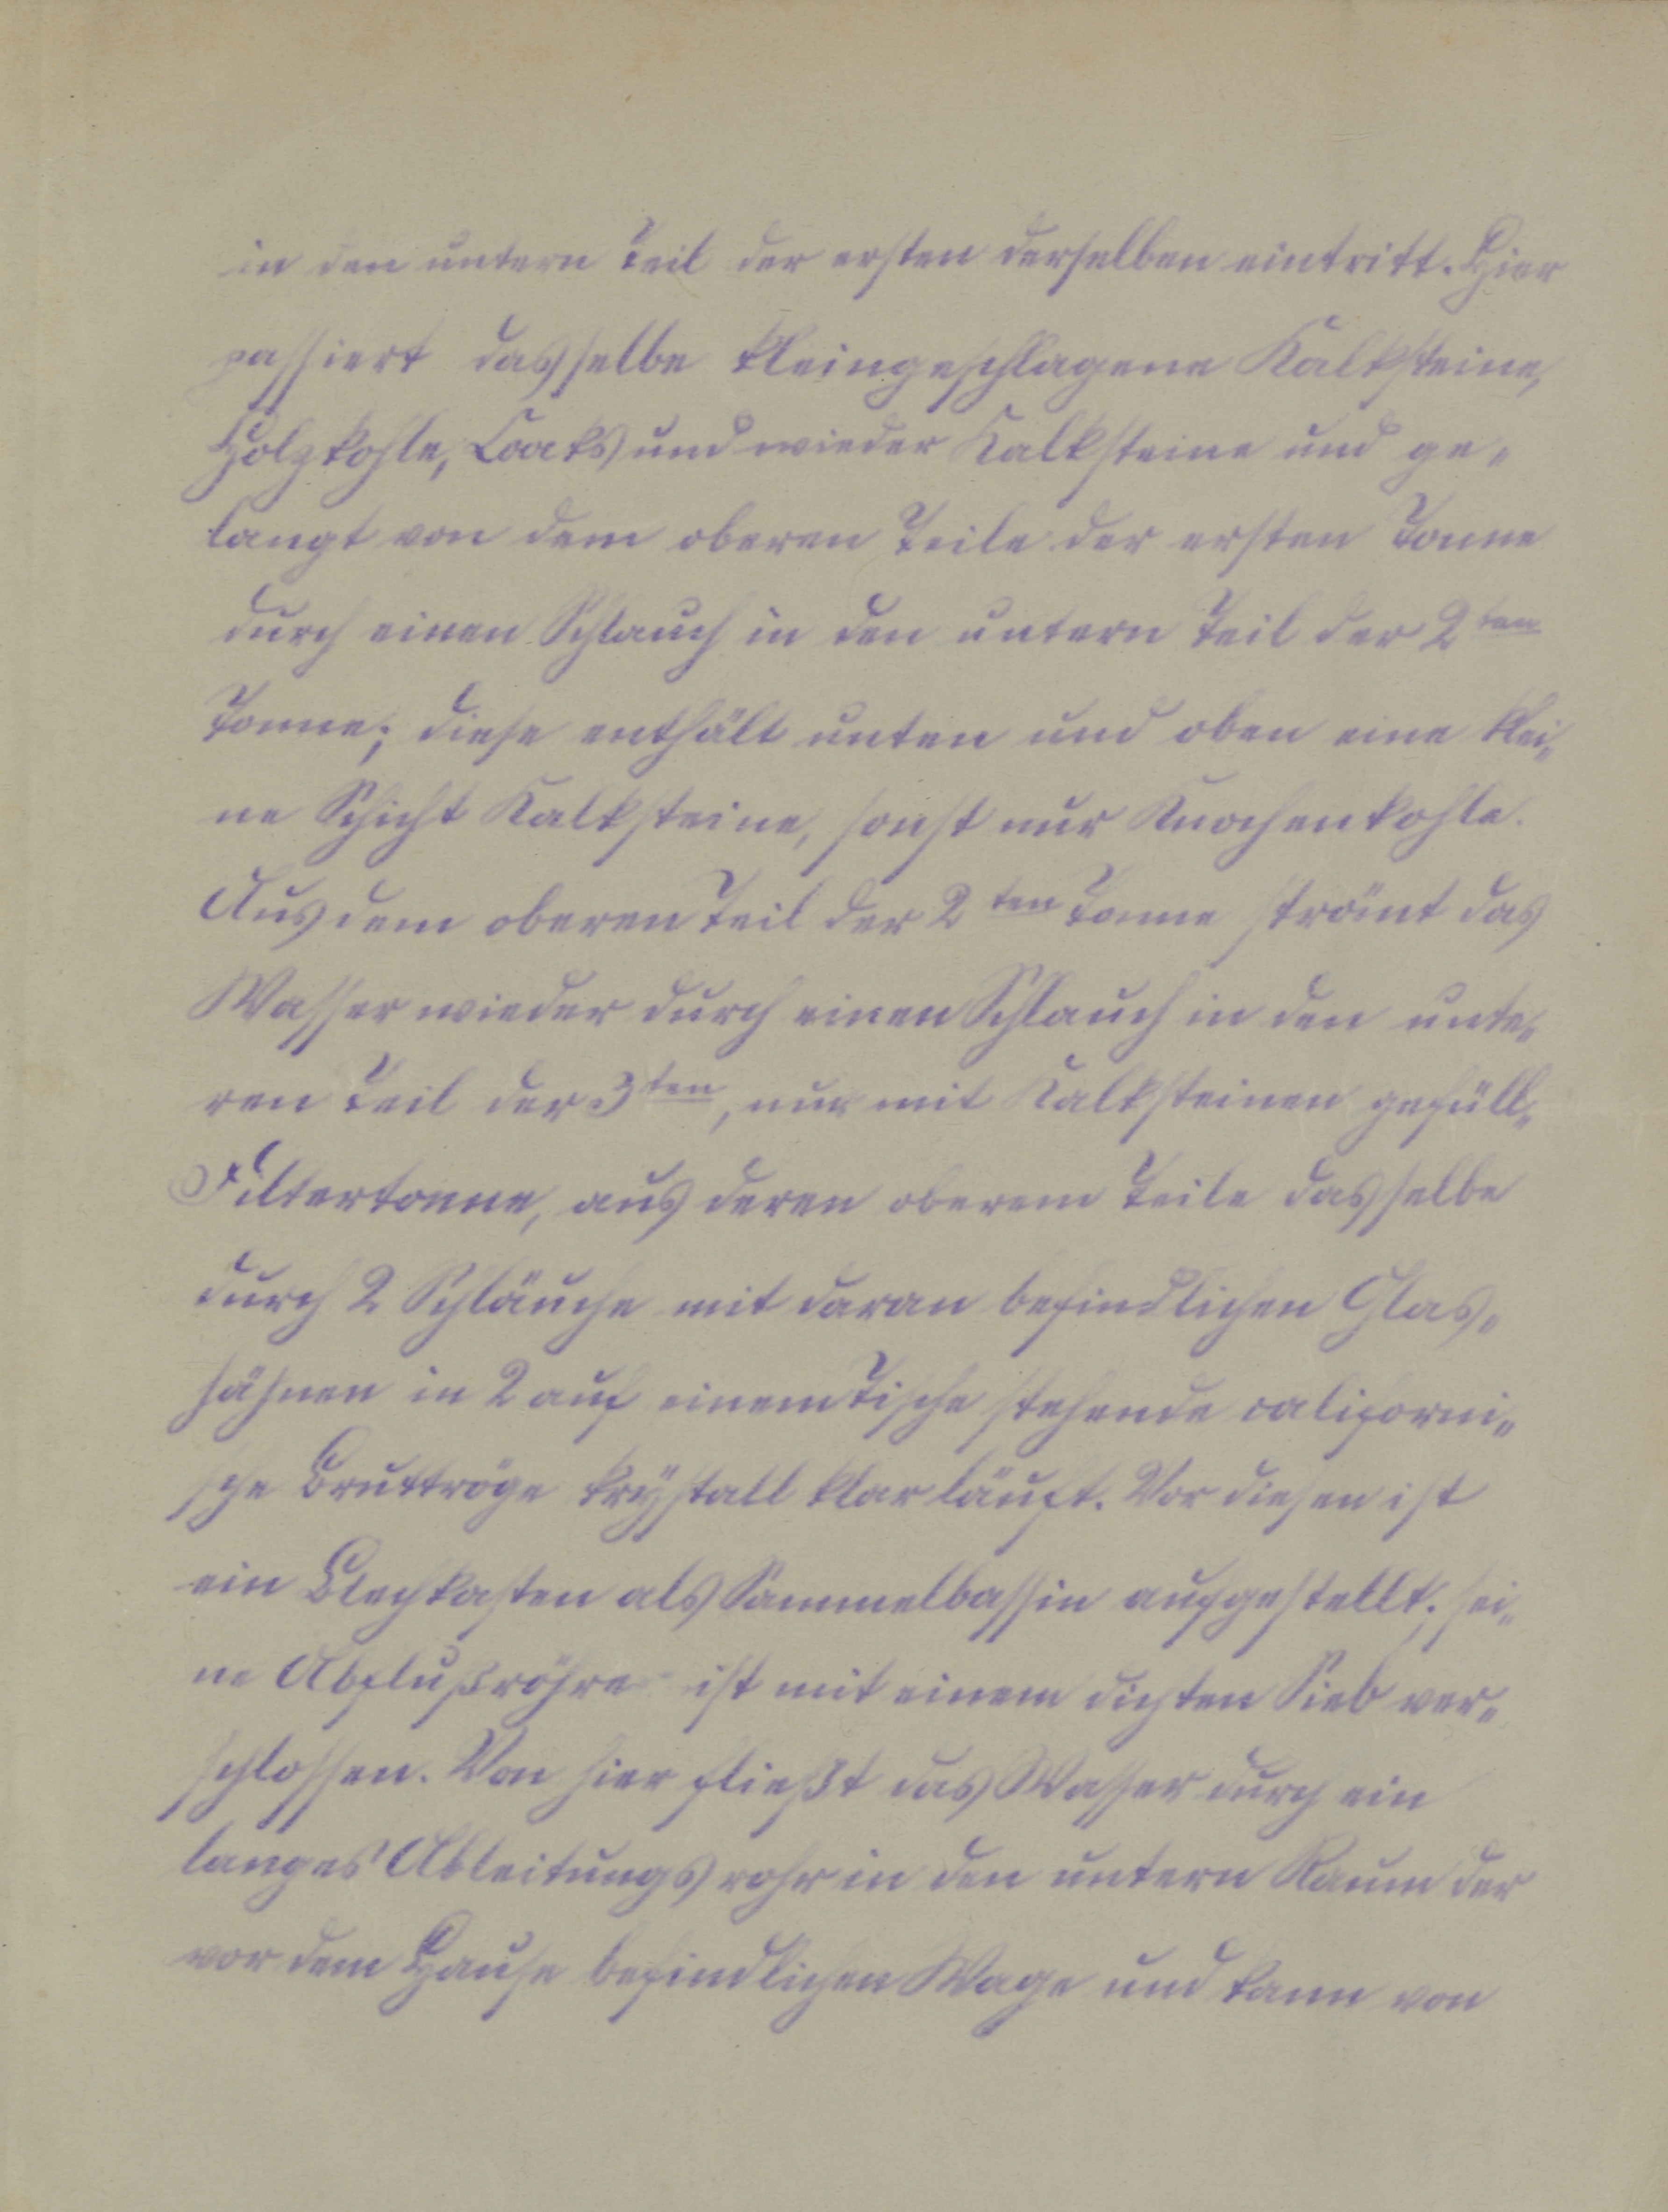 in den untern Teil der ersten derselben eintritt. Hier
passiert dasselbe kleingeschlagene Kalksteine,
Holzkohle, Coaks und wieder Kalksteine und ge-
langt von dem oberen Teile der ersten Tonne
durch einen Schlauch in den untern Teil der 2ten
Tonne; diese enthält unten und oben eine klei-
ne Schicht Kalksteine, sonst nur Knochenkohle.
Aus dem oberen Teil der 2ten Tonne strömt das
Wasser wieder durch einen Schlauch in den unte-
ren Teil der 3ten, nur mit Kalksteinen gefüll-
Filtertonne, aus deren oberem Teile dasselbe
durch 2 Schläuche mit daran befindlichen Glas-
hähnen in 2 auf einem Tische stehende californi-
sche Bruttröge krystall klar läuft. Vor diesen ist
ein Blechkasten als Sammelbassin aufgestellt; sei-
ne Abflußröhre ist mit einem dichten Sieb ver-
schlossen. Von hier fließt das Wasser durch ein
langes Ableitungsrohr in den untern Raum der
vor dem Hause befindlichen Wage und kann von